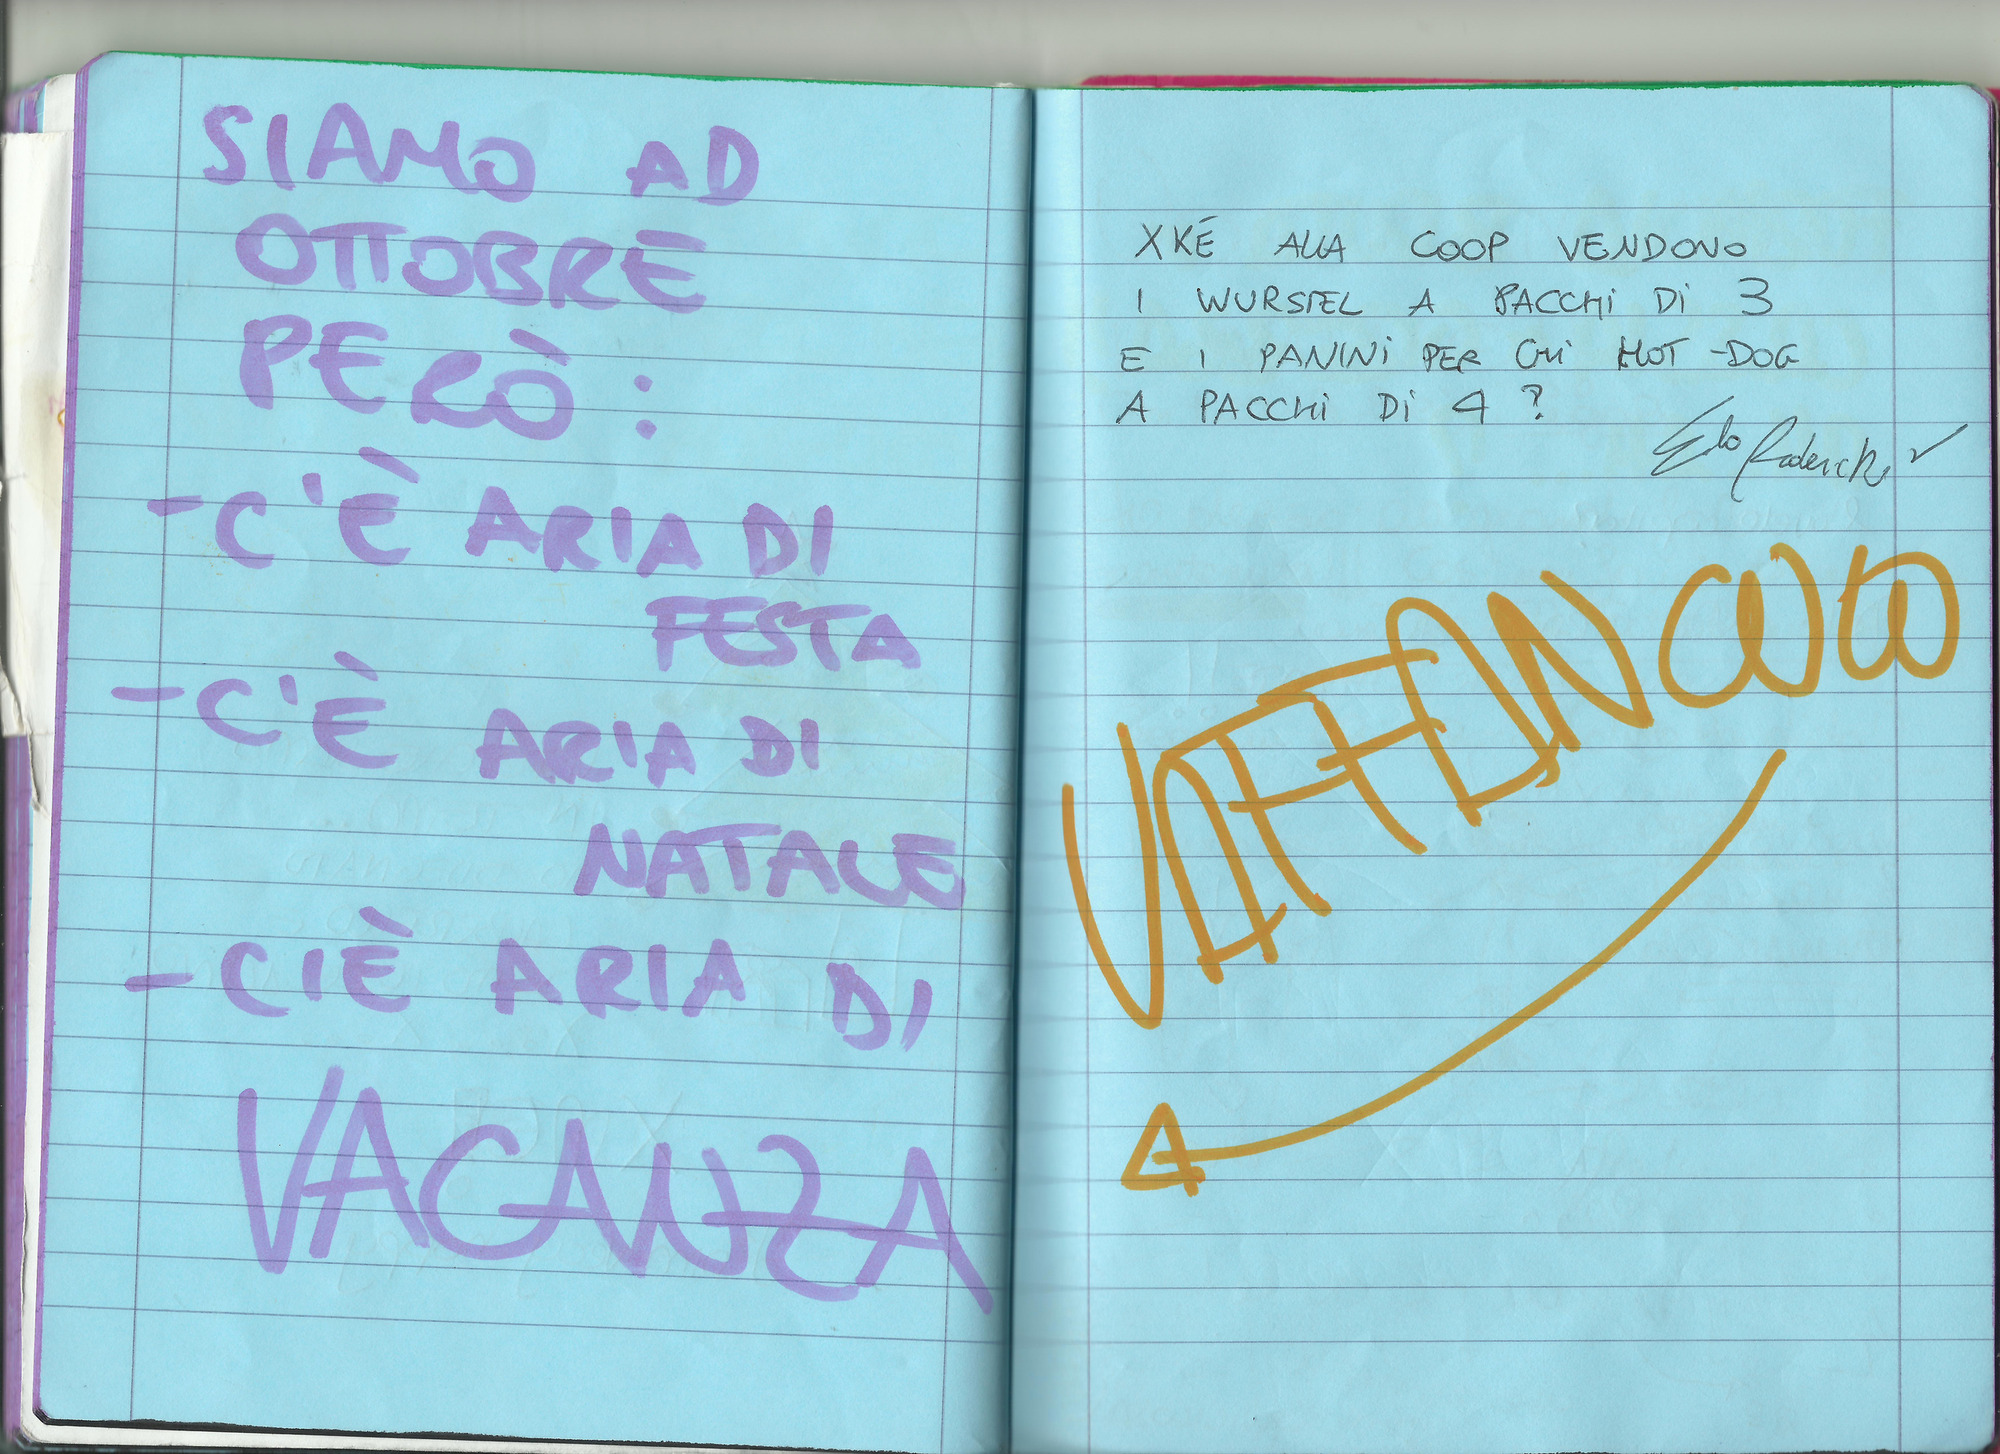 SIAMO AD
OTTOBRE
PERÒ:
-C'È ARIA DI
FESTA
-C'È ARIA DI
NATALE
-C'È ARIA DI
VACANZA
XKÉ ALLA COOP VENDONO
I WURSTEL A PACCHI DI 3
E I PANINI PER GLI HOT-DOG
A PACCHI DI 4?
VAFFANCULO